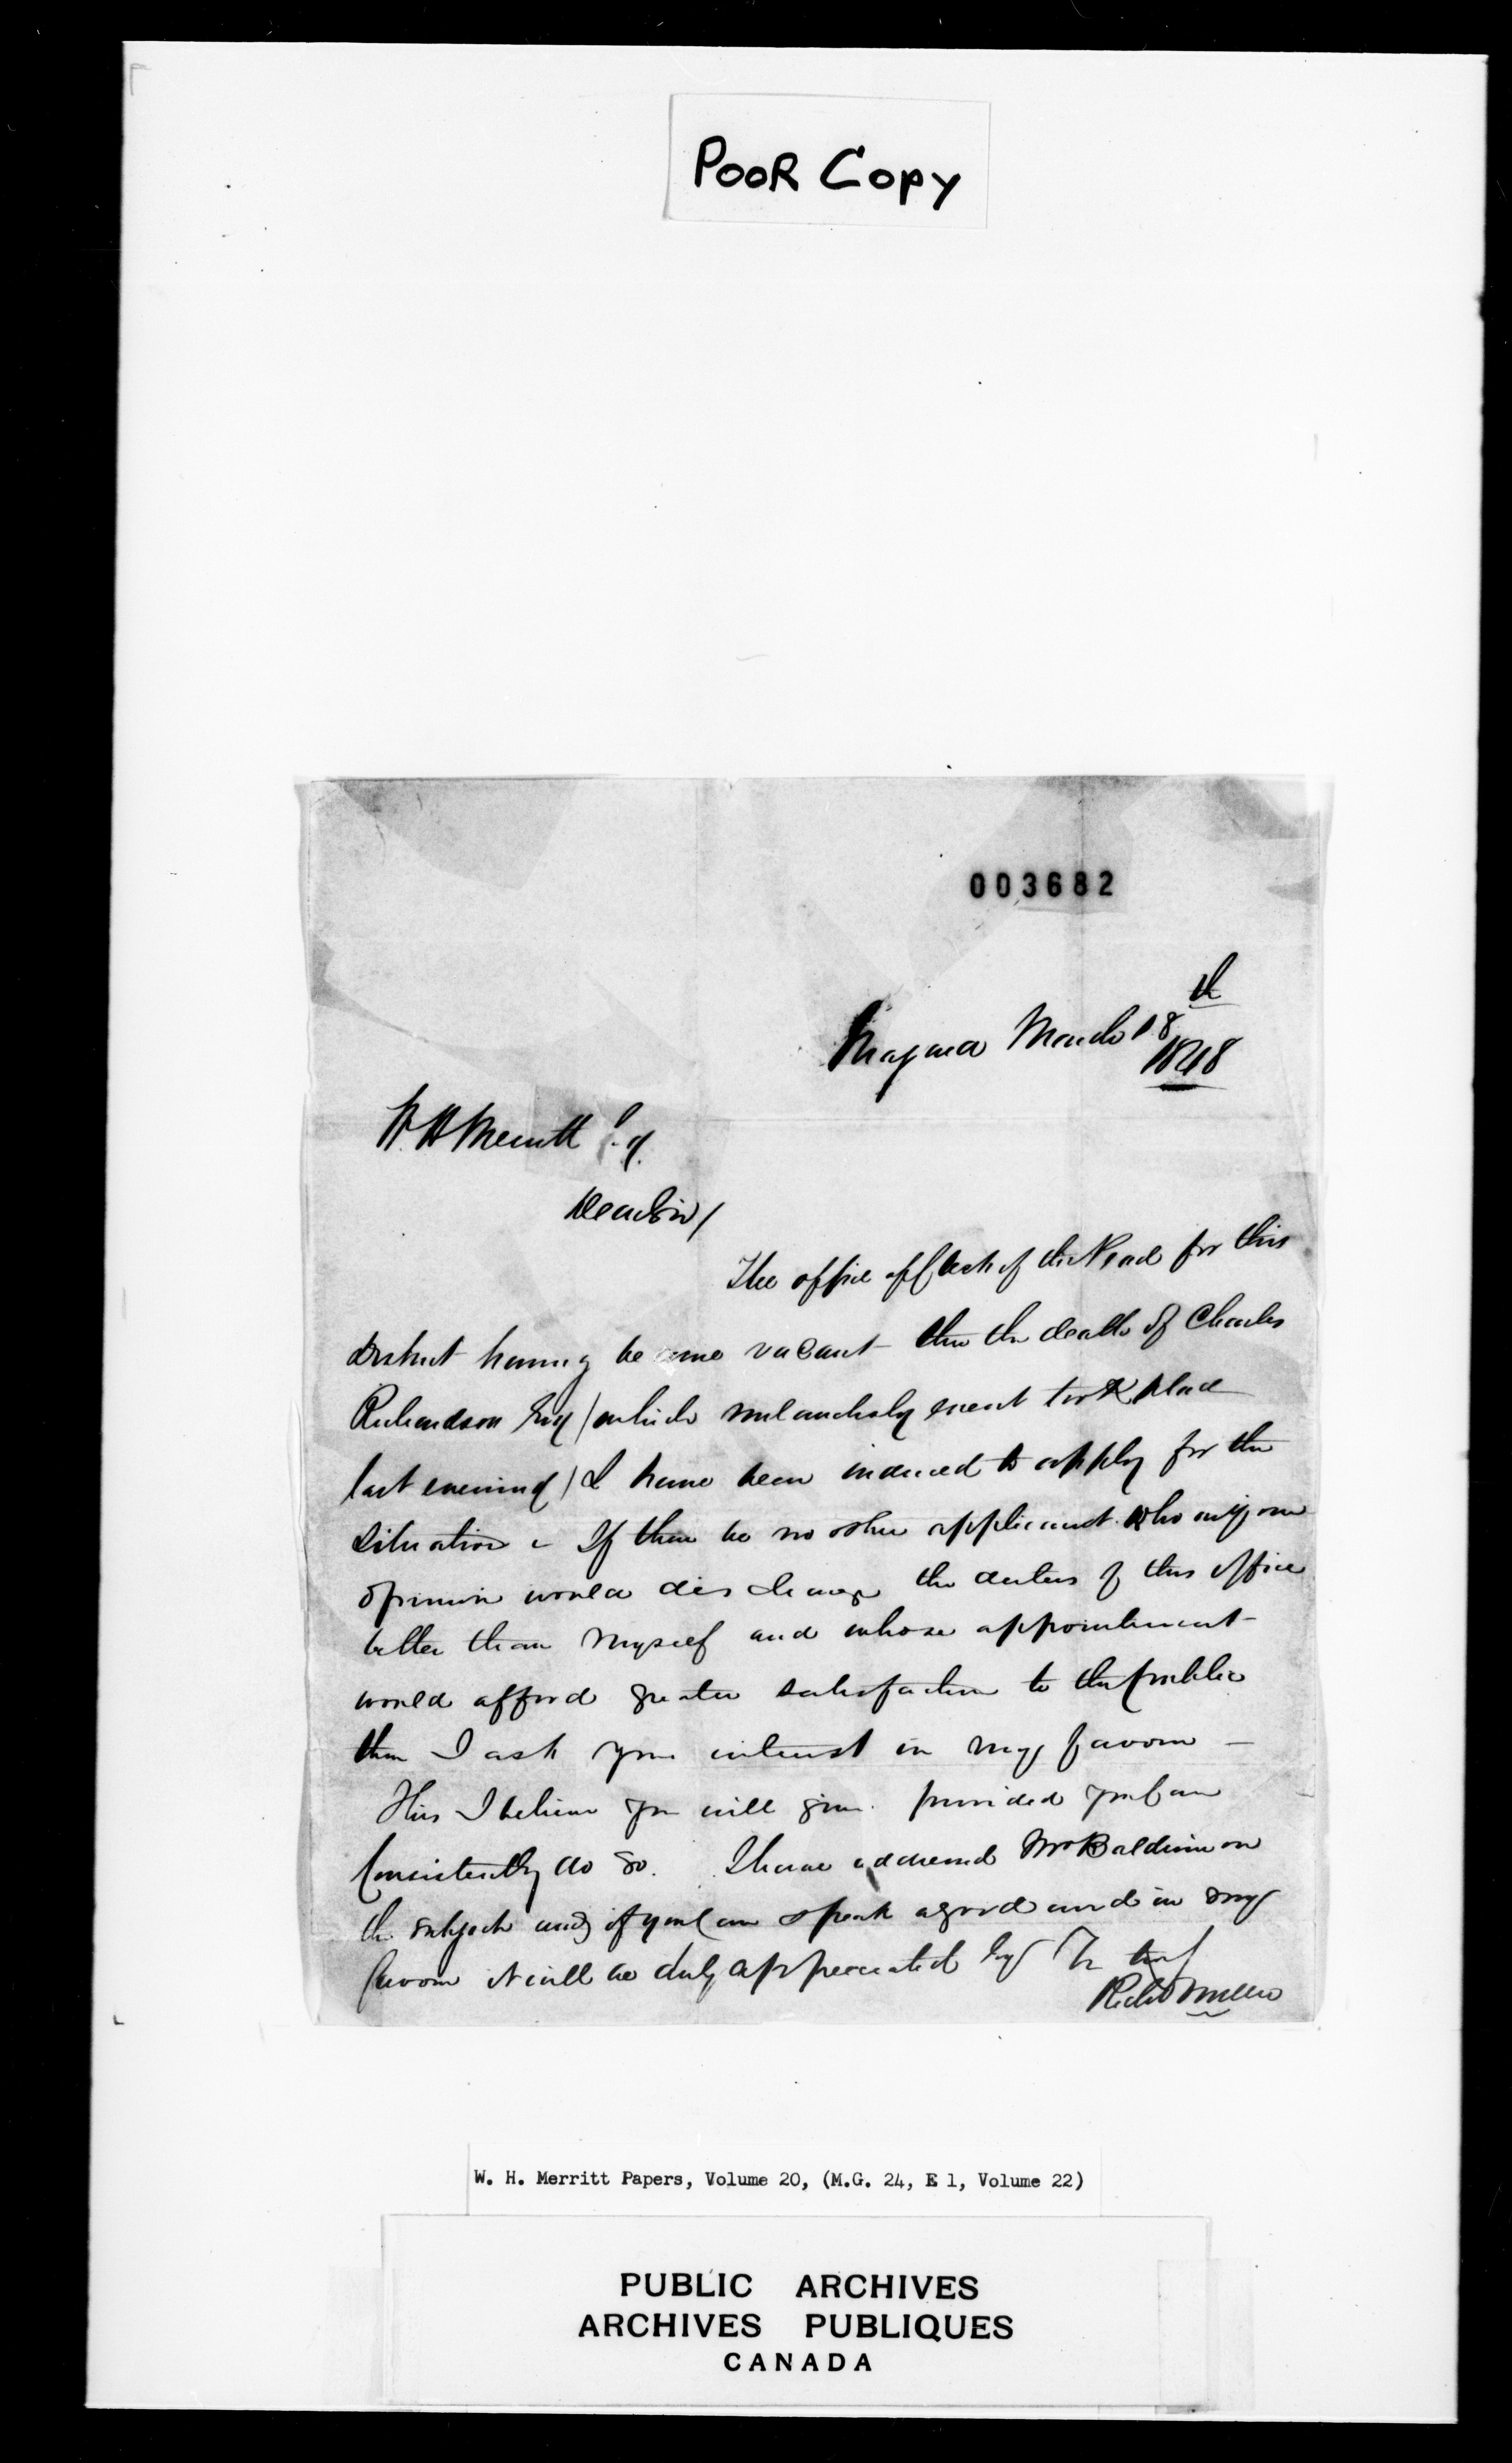 POOR COPY
003682
Niagara March 18th
1848
W H Merritt Esq
Dear Sir/
The office of Clerk of the Peace for this
District having become vacant thro the death of Charles
Richardson Esq / which melancholy event took place
last evening / I have been induced to apply for the
situation - If there be no other applicant who in your
opinion would discharge the duties of this office
better than myself and whose appointment
would afford greater satisfaction to the public
then I ask your interest in my favour -
This I believe you will give provided you can
Consistently do so. I have addressed Mr Baldwin on
the subject and if you can speak a good word in my
favour it will be duly appreciated by
Richd Miller
W. H. Merritt Papers, Volume 20, (M.G. 24, E 1, Volume 22)
PUBLIC ARCHIVES
ARCHIVES PUBLIQUES
CANADA